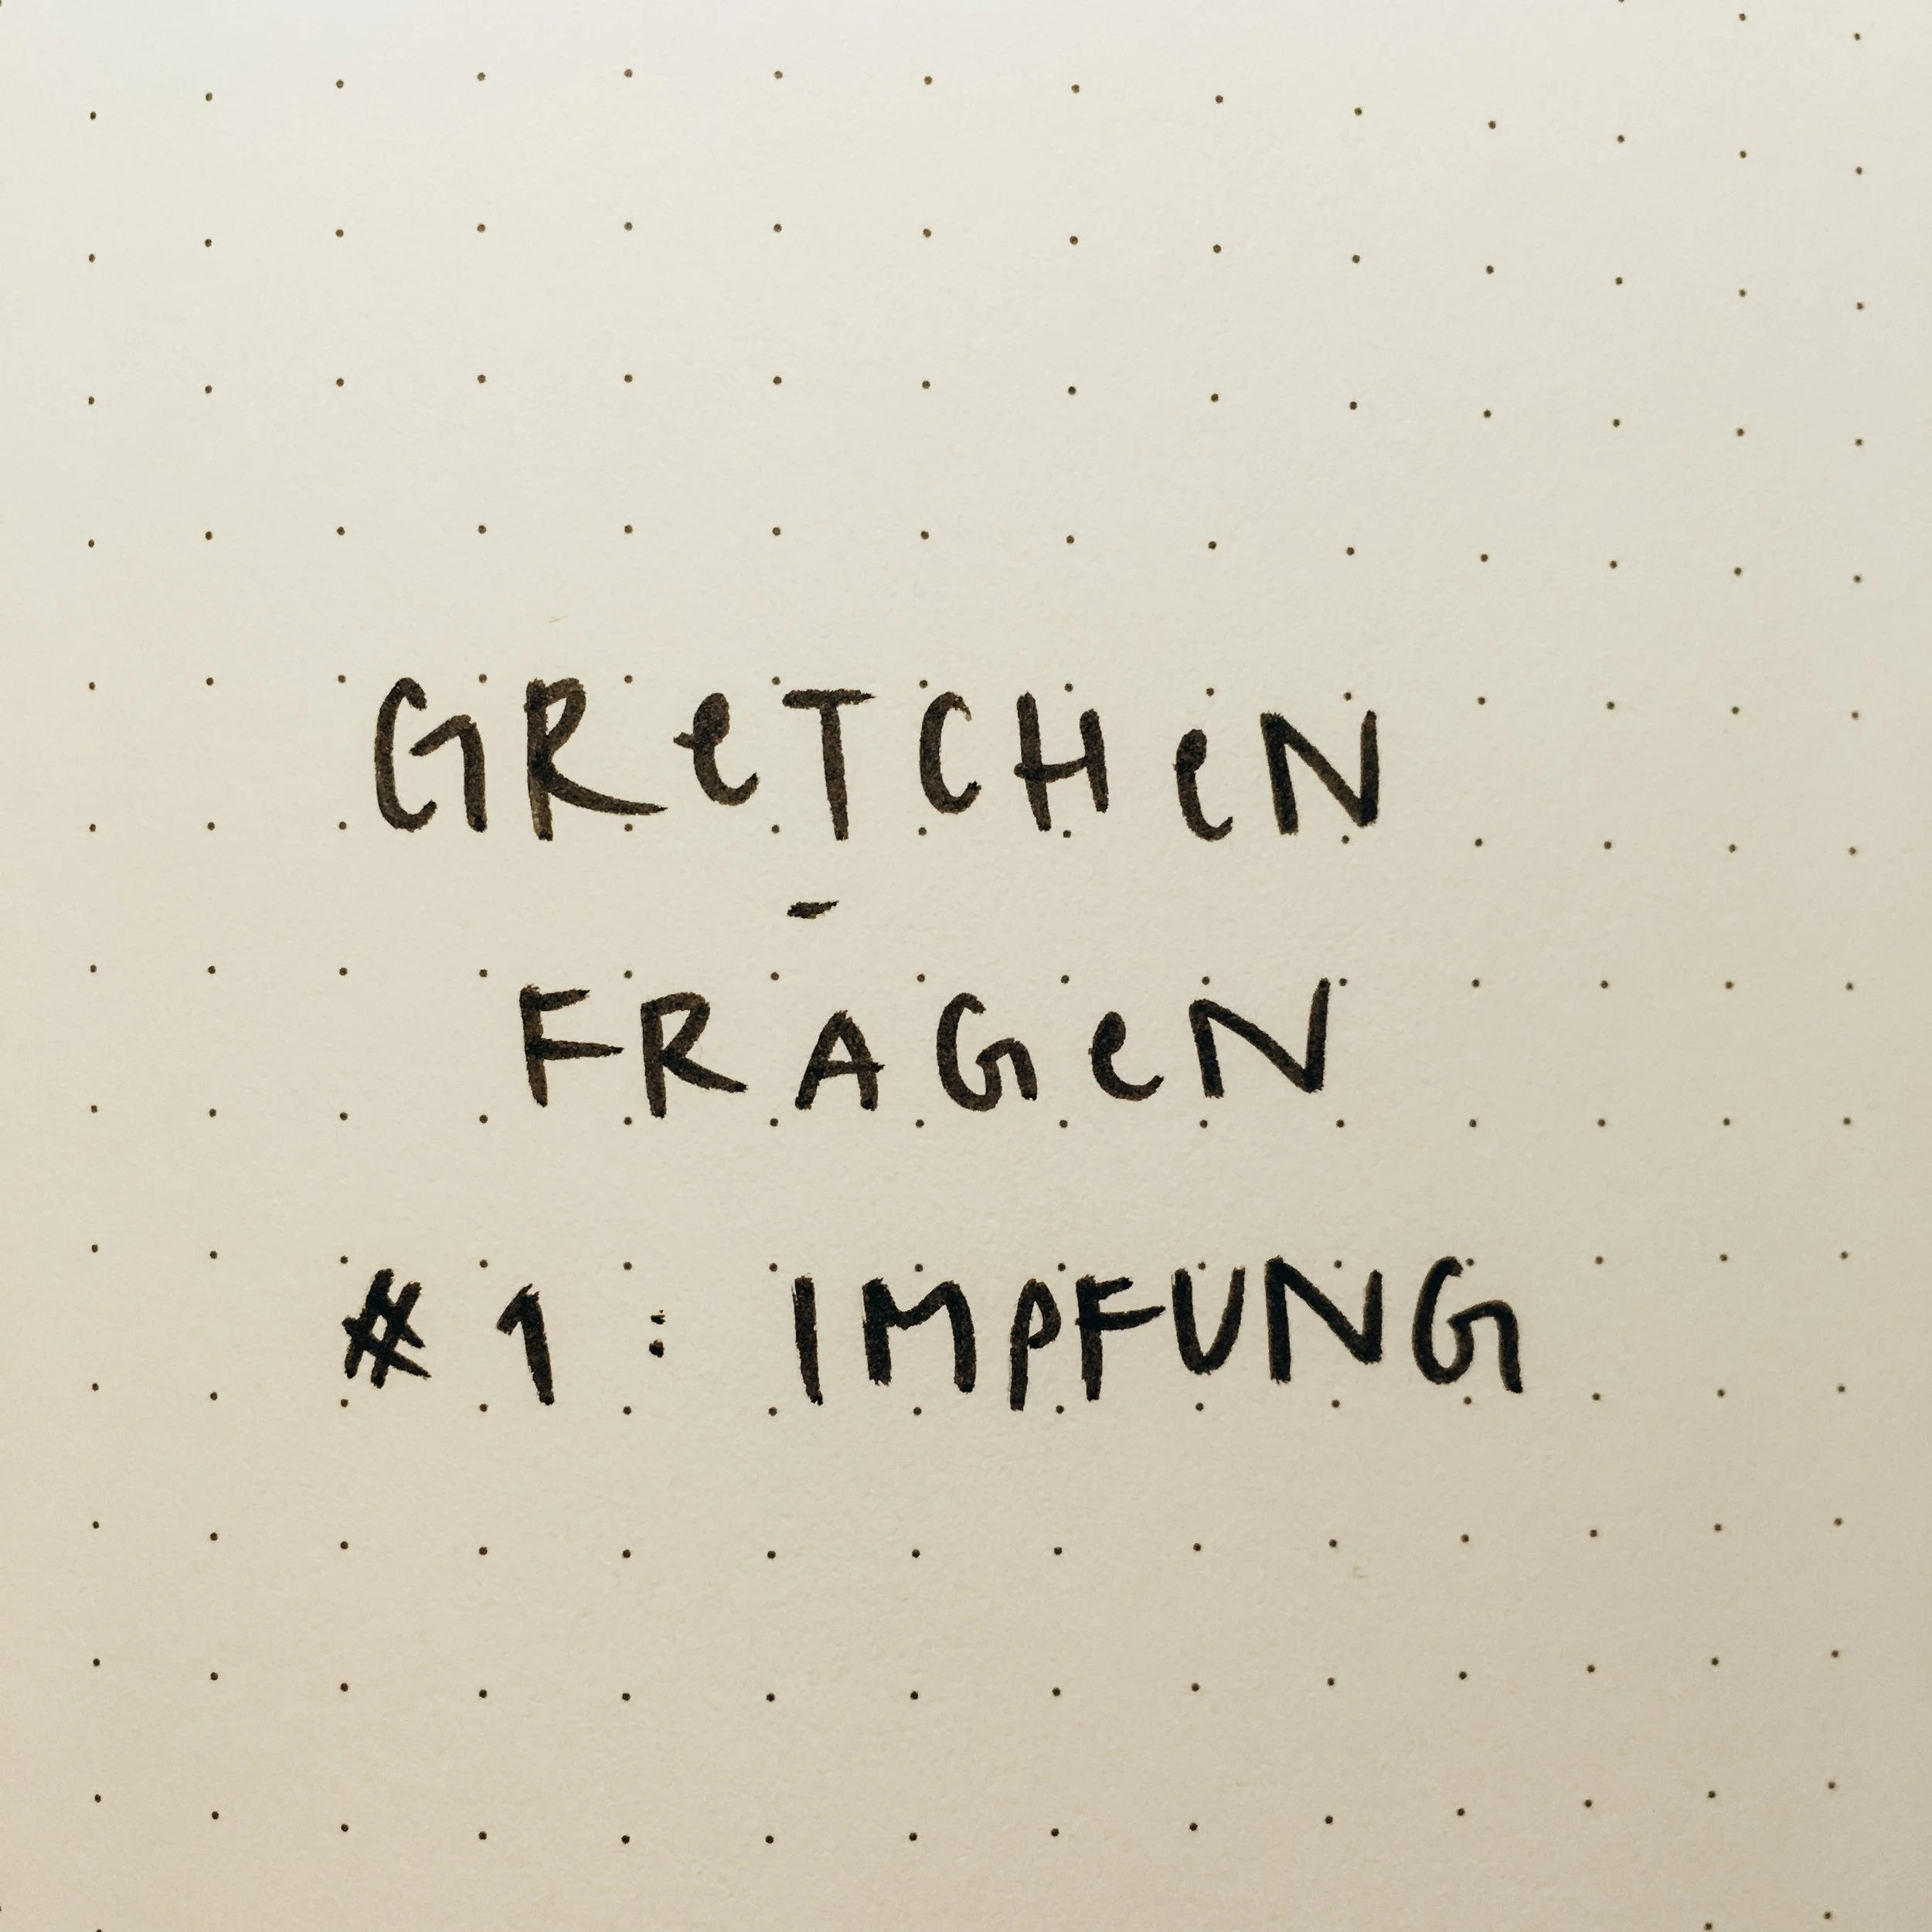 GReTCHeN
-
FRAGeN
#1: IMPFUNG